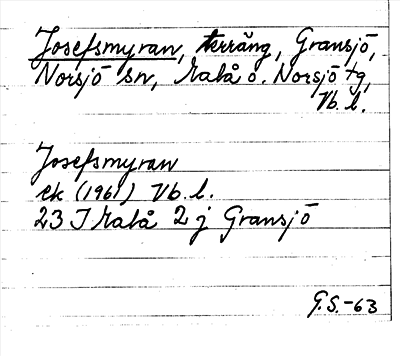 Josefsmyran, terräng, Gransjö,
Norsjö sn, Malå o. Norsjö tg,
Vb. l.
Josefsmyran
ek (1961) Vb. l.
23 I Malå 2 j Gransjö
G.S.-63